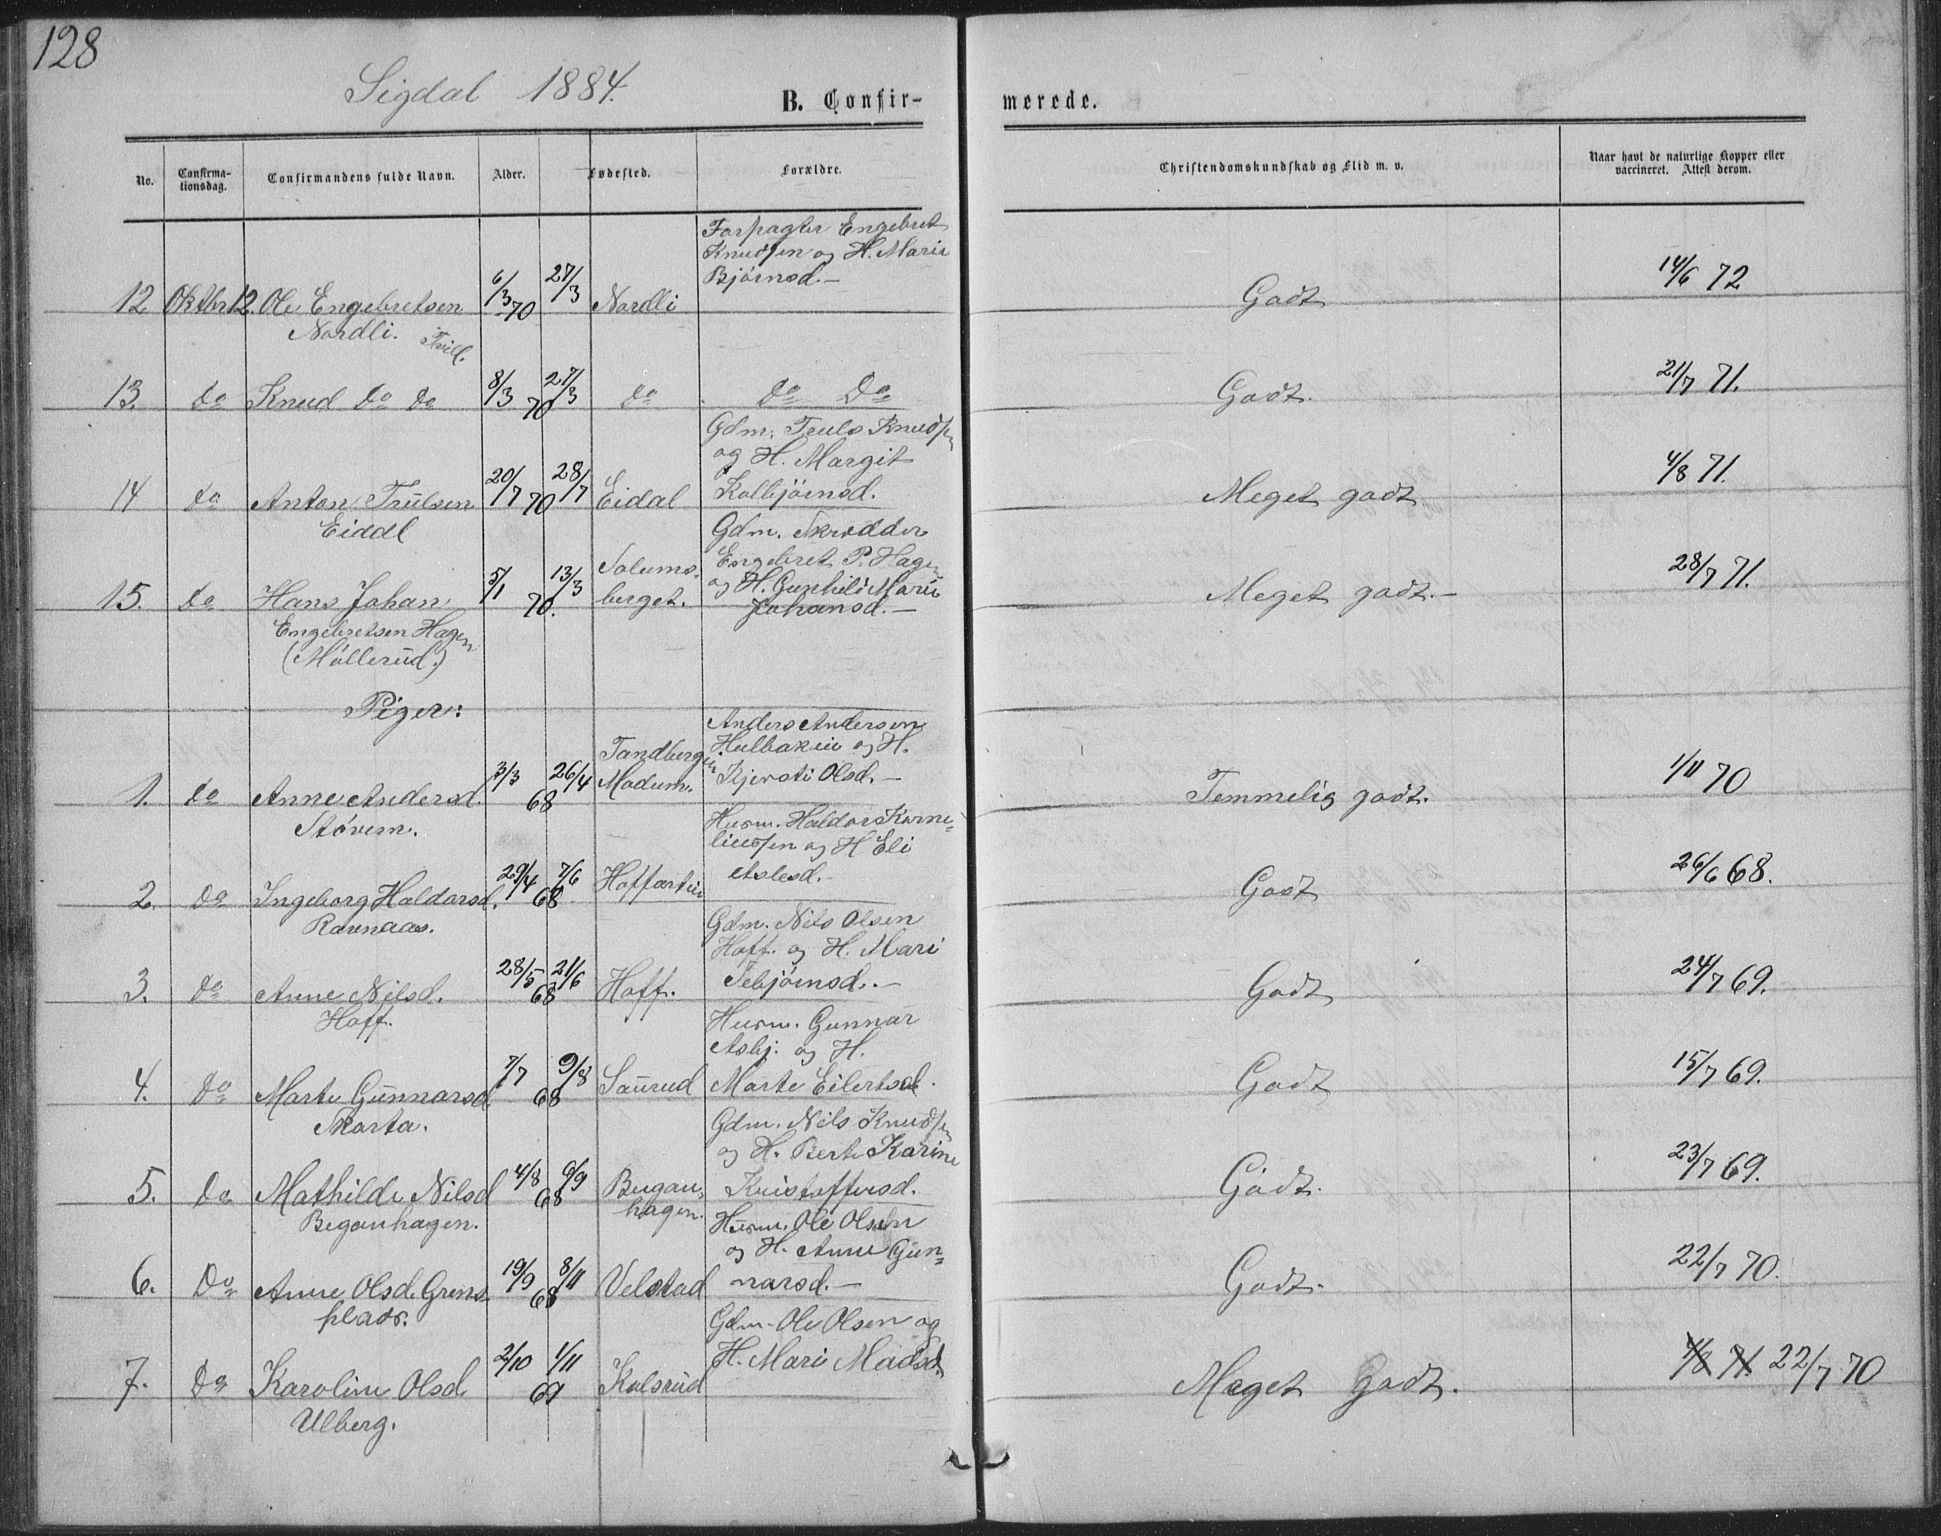 128
Sigdal 1884.
B. Confir-
merede.
No.
Confirma-
tionsdag.
Confirmandens fulde Navn.
Alder.
Fødested.
Forældre.
Christendomskundskab og Flid m. v.
Naar havt de naturlige Kopper eller
vaccineret. Attest derom.
Forpagter Engebret
Knudsen og H. Marie
Bjørnsd. —
12 Oktbr 12. Ole Engebretsen 6/3 70 27/3 Nordli Godt 14/6 72
Nordli. Tvill.
13. do Knud do do 8/3 70 27/3 do do Do Godt. 21/7 71.
Gdm. Truls Knudsen
og H. Margit
14 do Anton Trulsen 20/7 70 28/7 Eidal Kolbjørnsd. Meget godt 4/8 71.
Eidal
Gdm. Skrædder
Engebret P. Hagen
og H. Gunhild Marie
15. do Hans Johan 5/1 70. 13/3 Solums-
berget. Johansd. — Meget godt. — 28/7 71.
Engebretsen Hagen
(Møllerud.)
Piger:
Anders Andersen
Hulbakein og H.
1. do Anne Andersd. 3/3 68 26/4 Tandbergein
Modum. Kjersti Olsd. — Temmelig godt. 1/11 70
Støvern.
Husm. Haldor Korne-
liussen og H Eli
2. do Ingeborg Haldorsd. 29/4 68 7/6 Hoffartein Aslesd. — Godt 26/6 68.
Ravnaas.
Gdm. Nils Olsen
Hoff. og H. Mari
3. do Anne Nilsd. 28/5 68 21/6 Hoff. Tebjørnsd. — Godt 24/7 69.
Hoff.
Husm. Gunnar
Asbj. og H.
4. do Marte Gunnarsd 7/7 68 9/8 Saurud Marte Eilertsd. Godt 15/7 69.
Skarta.
Gdm. Nils Knudsen
og H. Berte Karine
5. do Mathilde Nilsd 4/8 68 9/9 Began-
hagen. Kristoffersd. Godt. 23/7 69.
Beganhagen.
Husm. Ole Olsen
og H. Anne Gun-
6. Do Anne Olsd. Grens- 19/9 68 8/11 Velstad narsd. — Godt. 22/7 70.
plads.
Gdm. Ole Olsen og
H. Mari Madsd.
7. Do Karoline Olsd 2/10 69 1/11 Kolsrud Meget Godt. 4/8 71. 22/7 70
Ulberg.